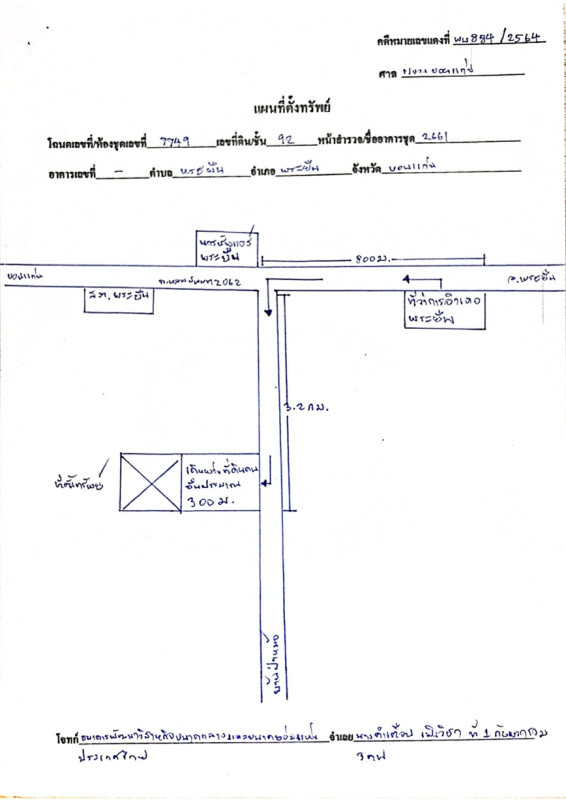 คดีหมายเลขแดงที่ ผบ884/2564
ศาล
แผนที่ตั้งทรัพย์
โฉนดเลขที่/ห้องชุดเลขที่ 7749 เลขที่ดิน/ชั้น 92 หน้าสำรวจ/ชื่ออาคารชุด 2661
อาคารเลขที่ - ตำบล พระยืน อำเภอ พระยืน จังหวัด ขอนแก่น
พระยืน
800 ม.
ขอนแก่น
2062
อ.พระยืน
สภ.พระยืน
ที่ว่าการอำเภอ
พระยืน
3.2 กม.
ที่ตั้งทรัพย์
เดินผ่านที่ดินคน
อื่นประมาณ
300 ม.
บ้านป่าหม้อ
โจทก์ ธนาคารพัฒนาวิสาหกิจขนาดกลางและขนาดย่อมแห่ง จำเลย ที่ 1 กับพวกรวม
ประเทศไทย 3 คน